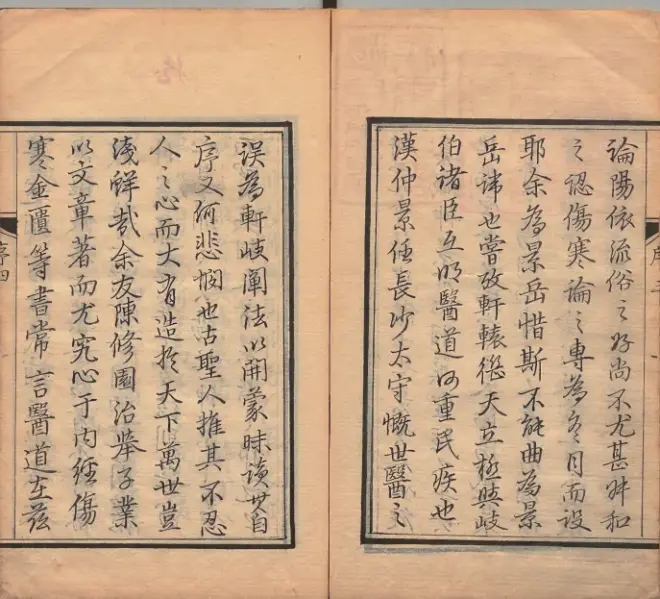 論陽依流俗之好尚不尤甚舛和
之認傷寒論之專為冬月而設
耶余為景岳惜斯不能曲為景
岳諱也嘗攷軒轅繼天立極與岐
伯諸臣互明醫道以重民疾也
漢仲景任長沙太守慨世醫之
誤為軒歧闡法以開蒙昧讀其自
序又何悲憫也古聖人推其不忍
人之心而大有造於天下萬世豈
淺鮮哉余友陳修園治舉子業
以文章著而尤究心于內經傷
寒金匱等書常言醫道在茲
序四